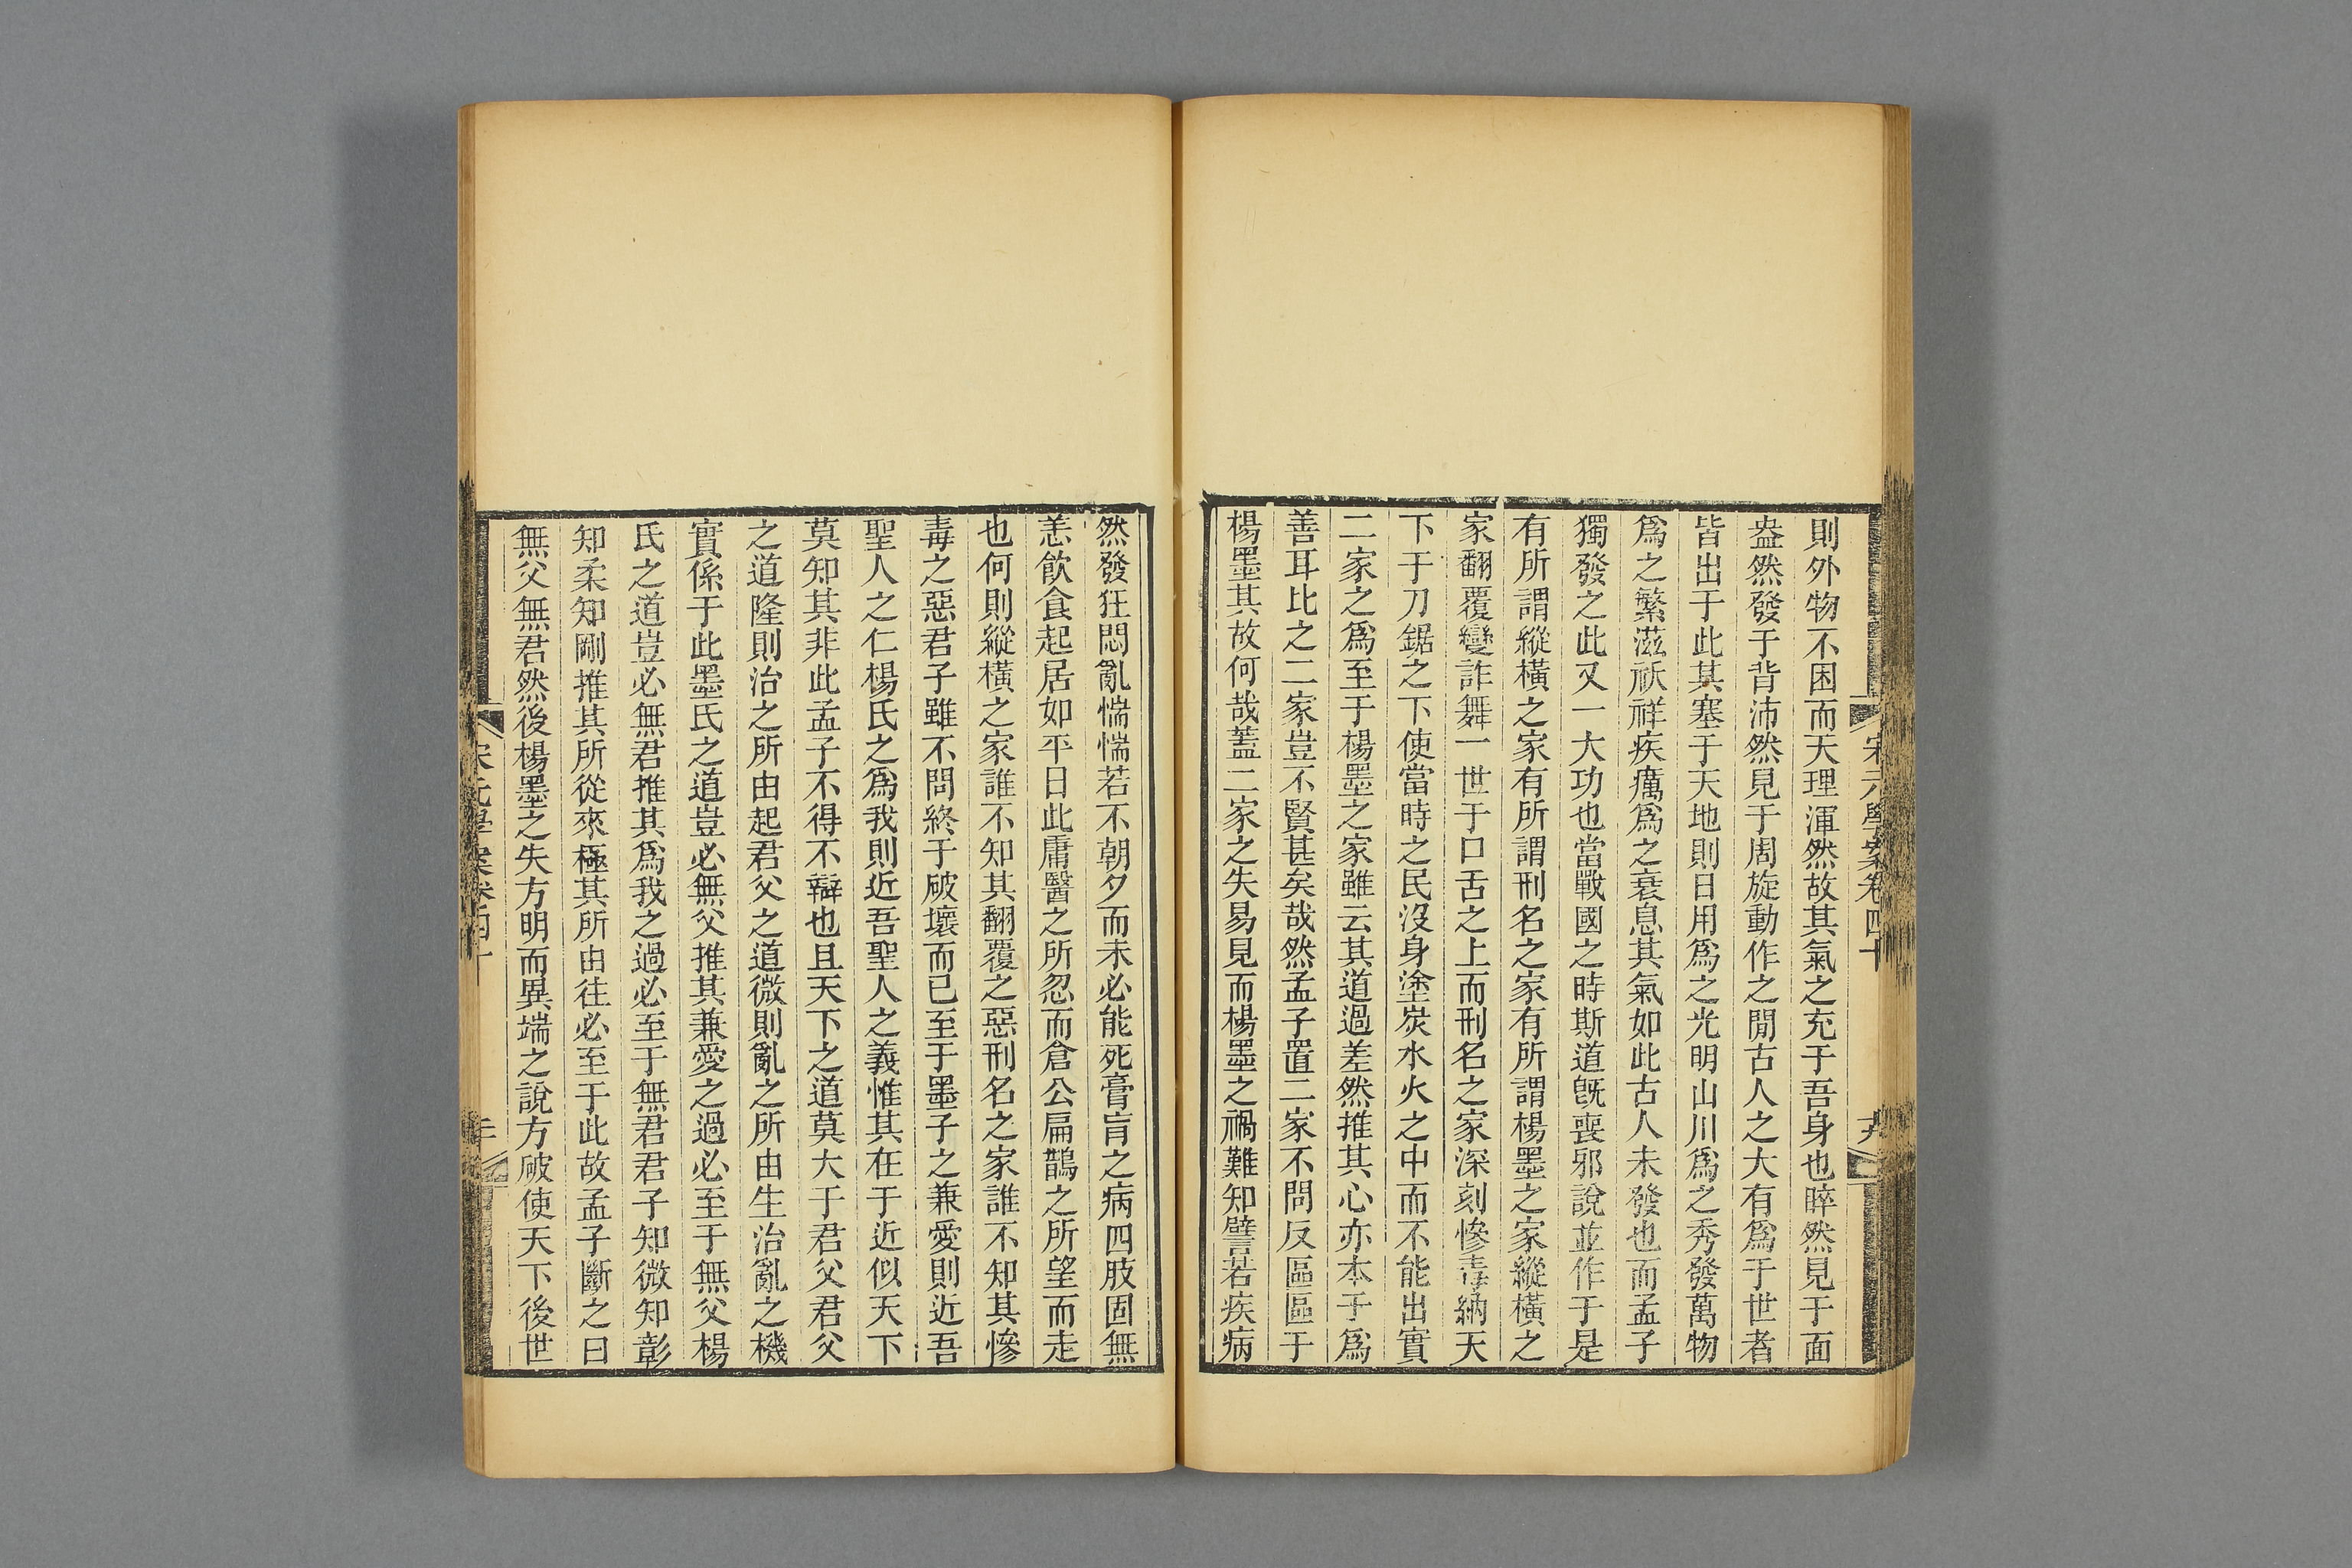 宋元學案卷四十
則外物不困而天理渾然故其氣之充于吾身也睟然見于面
盎然發于背沛然見于周旋動作之閒古人之大有爲于世者
皆出于此其塞于天地則日用爲之光明山川爲之秀發萬物
爲之繁滋祅祥疾癘爲之衰息其氣如此古人未發也而孟子
獨發之此又一大功也當戰國之時斯道旣喪邪說並作于是
有所謂縱橫之家有所謂刑名之家有所謂楊墨之家縱橫之
家翻覆變詐舞一世于口舌之上而刑名之家深刻慘毒納天
下于刀鋸之下使當時之民沒身塗炭水火之中而不能出實
二家之爲至于楊墨之家雖云其道過差然推其心亦本于爲
善耳比之二家豈不賢甚矣哉然孟子置二家不問反區區于
楊墨其故何哉蓋二家之失易見而楊墨之禍難知譬若疾病
然發狂悶亂惴惴若不朝夕而未必能死膏肓之病四肢固無
恙飮食起居如平日此庸醫之所忽而倉公扁鵲之所望而走
也何則縱橫之家誰不知其翻覆之惡刑名之家誰不知其慘
毒之惡君子雖不問終于破壞而已至于墨子之兼愛則近吾
聖人之仁楊氏之爲我則近吾聖人之義惟其在于近似天下
莫知其非此孟子不得不辯也且天下之道莫大于君父君父
之道隆則治之所由起君父之道微則亂之所由生治亂之機
實係于此墨氏之道豈必無父推其兼愛之過必至于無父楊
氏之道豈必無君推其爲我之過必至于無君君子知微知彰
知柔知剛推其所從來極其所由往必至于此故孟子斷之曰
無父無君然後楊墨之失方明而異端之說方破使天下後世
宋元學案卷四十